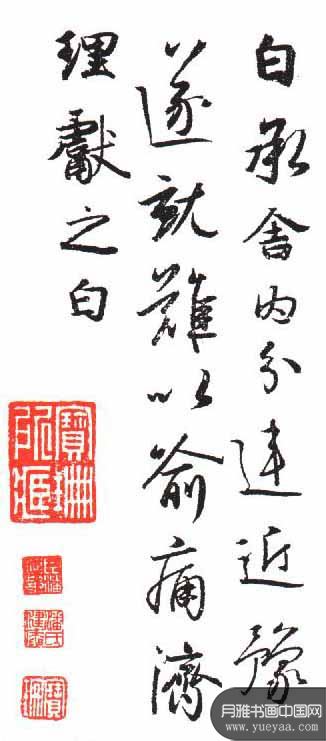 白承舍内分違近豫
遂就難以喻痛濟
理獻之白
月雅书画中国网
www.yueyaa.com